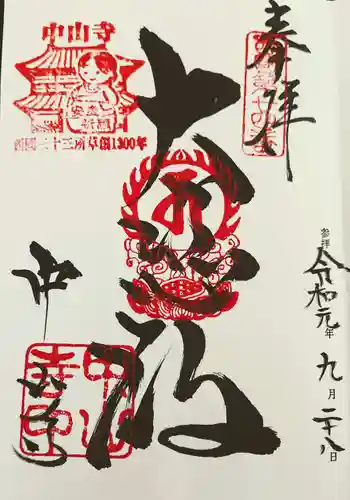 奉拝
大悲殿
中山寺
参拝 令和元年 九月 二十八日
中山寺
西國三十三所草創1300年